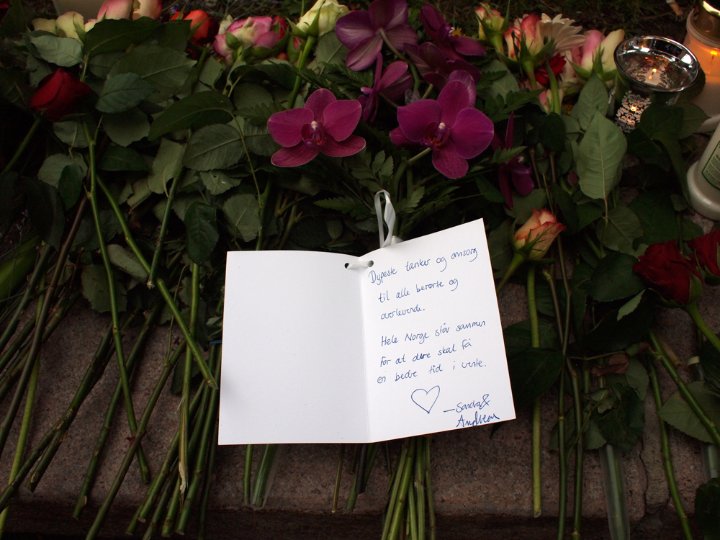 Dypeste tanker og omsorg
til alle berørte og
overlevende.
Hele Norge står sammen
for at dere skal få
en bedre tid i vente.
♡ – Sondre &